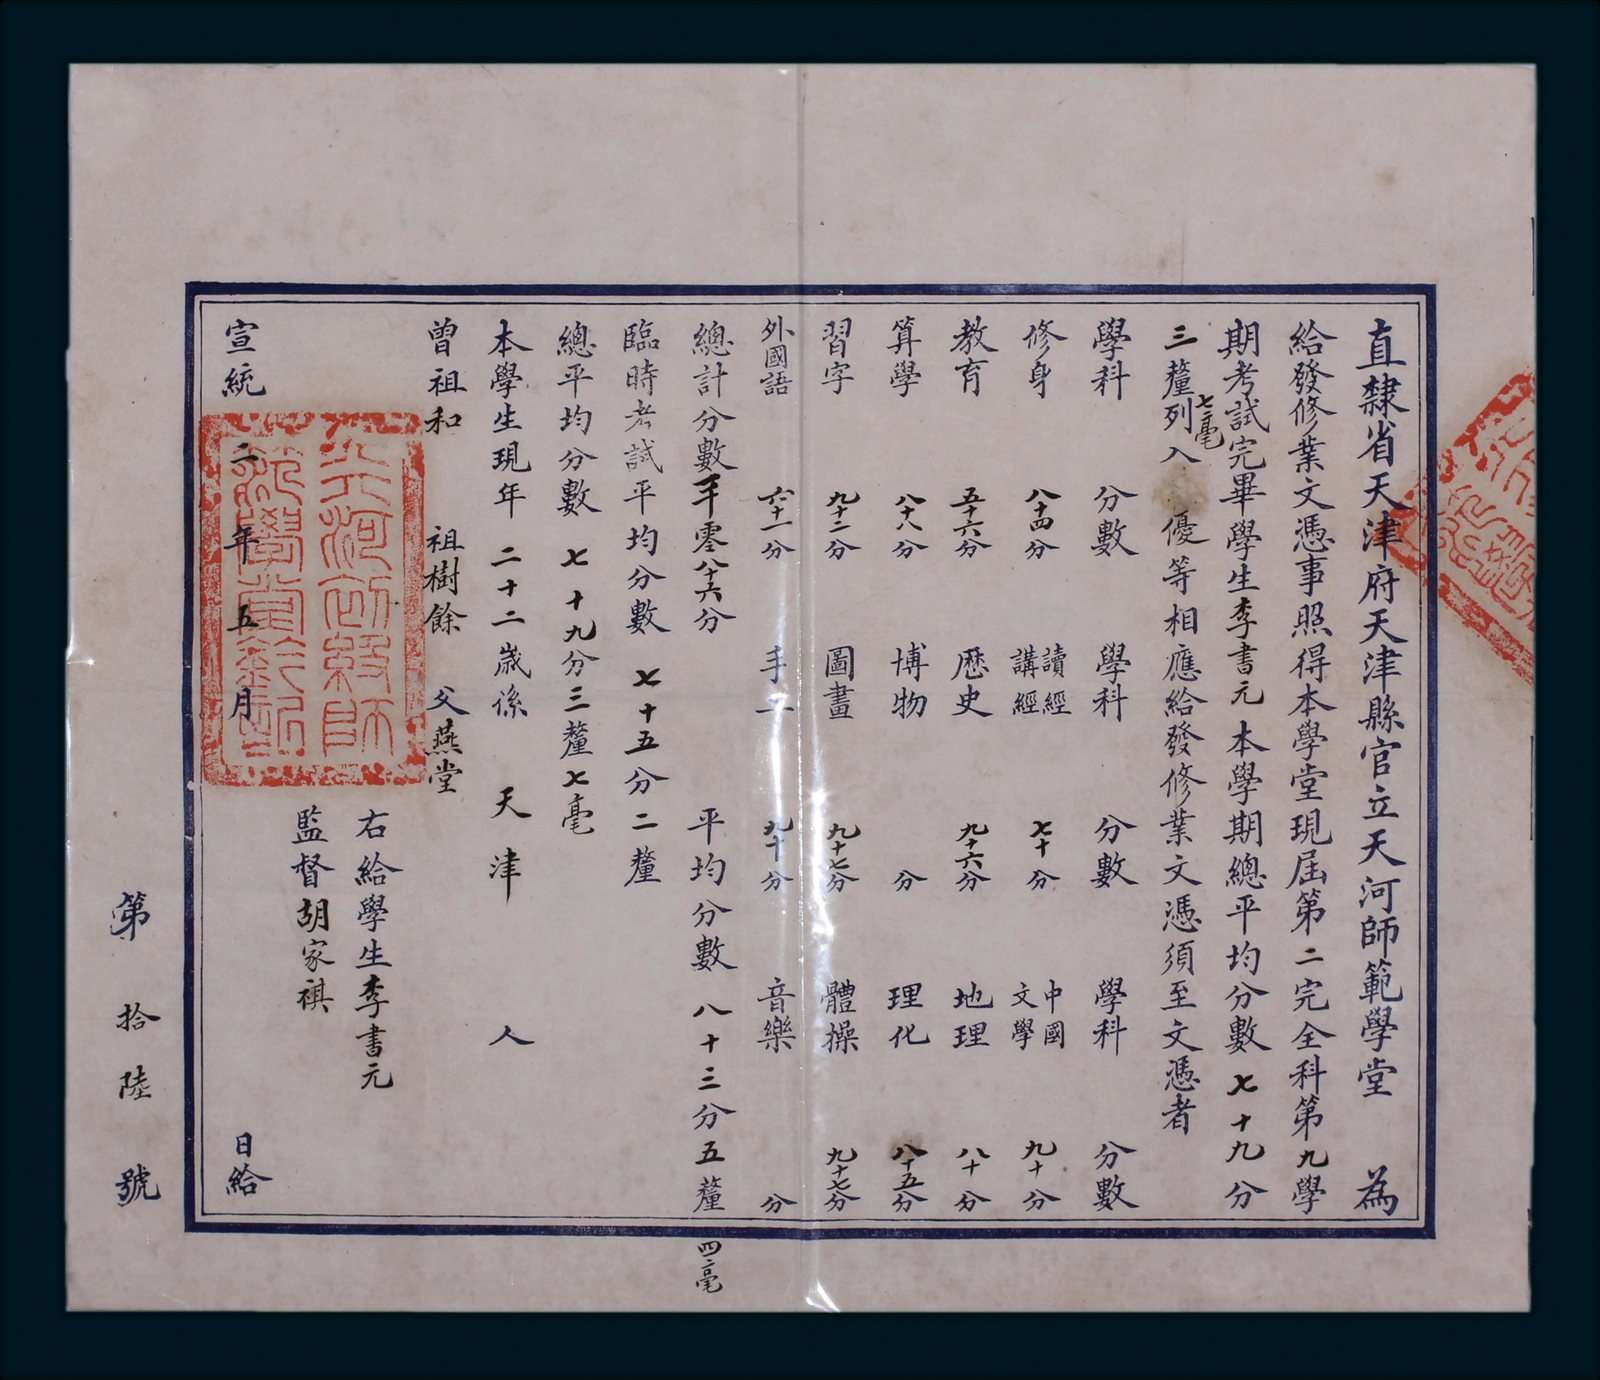 直隸省天津府天津縣官立天河師範學堂 為
給發修業文憑事照得本學堂現屆第二完全科第九學
期考試完畢學生李書元本學期總平均分數七十九分
三釐七毫列入 優等相應給發修業文憑須至文憑者
學科 分數 學科 分數 學科 分數
修身 八十四分 讀經講經 七十分 中國文學 九十分
教育 五十六分 歷史 九十六分 地理 八十分
算學 八十八分 博物 分 理化 八十五分
習字 九十二分 圖畫 九十七分 體操 九十七分
外國語 六十一分 手工 九十分 音樂 分
總計分數一千零八十六分 平均分數 八十三分五釐四毫
臨時考試平均分數 七十五分二釐
總平均分數 七十九分三釐七毫
本學生現年 二十二歲係 天津 人
曾祖和 祖樹餘 父燕堂
右給學生李書元
監督胡家祺
宣統二年五月 日給
第拾陸號